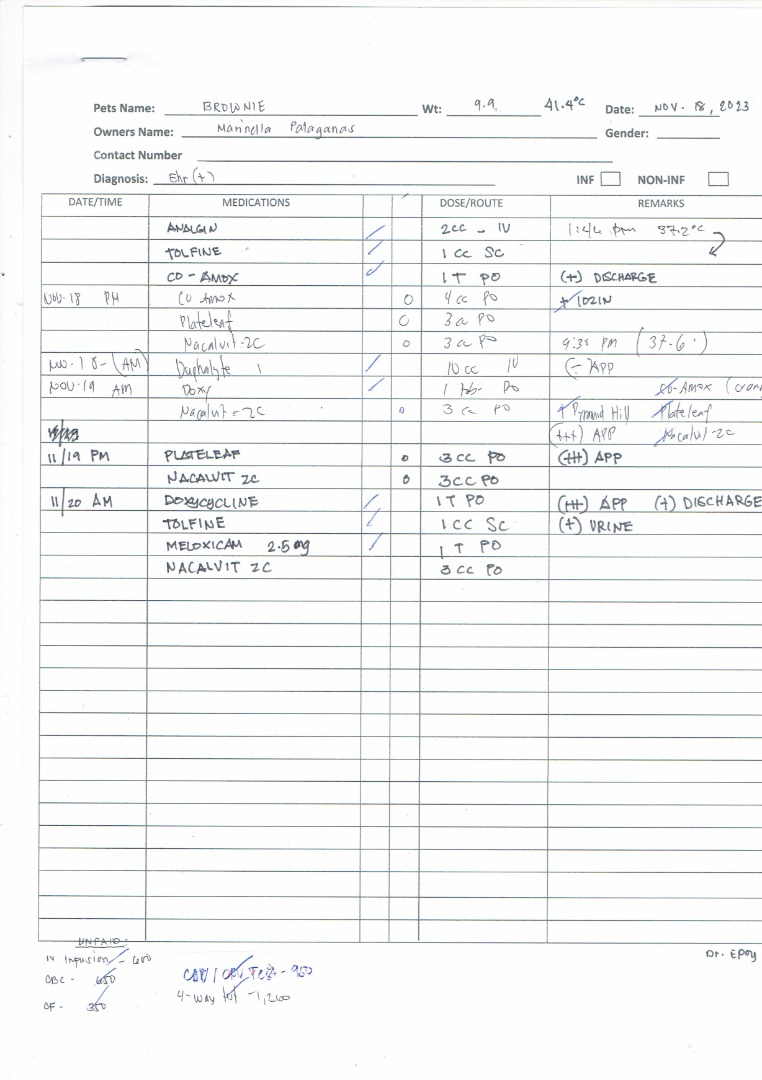 Pets Name: BROWNIE Wt: 9.9 41.4°C Date: NOV. 18, 2023
Owners Name: Marinella Palaganas Gender:
Contact Number
Diagnosis: Ehr (+) INF NON-INF
DATE/TIME MEDICATIONS DOSE/ROUTE REMARKS
ANALGIN 2CC - IV 1:44 pm 37.2°C
TOLFINE 1 CC SC
CO-AMOX 1 T PO (+) DISCHARGE
NOV-18 PM Co Amox 4 cc PO + IOZIN
Plateleaf 3 cc PO
Nacalvit-2C 3 cc PO 9:35 PM (37.6°)
NOV-18-(AM) Duphalyte 10 cc IV (-) APP
NOV-19 AM Doxy 1 tab PO Co-Amox
Nacalvit-2C 3 cc PO Pyramid Hill Plateleaf
(+++) APP Nacalvit-2C
11/19 PM PLATELEAF 3CC PO (+++) APP
NACALVIT 2C 3CC PO
11/20 AM DOXYCYCLINE 1 T PO (+++) APP (+) DISCHARGE
TOLFINE 1 CC SC (+) URINE
MELOXICAM 2.5 mg 1 T PO
NACALVIT 2C 3 CC PO
UNPAID:
IV Infusion - 600
CBC - 650
CF - 350
CDV / CPV Test - 950
4-way tst - 1,200
Dr. EPOY